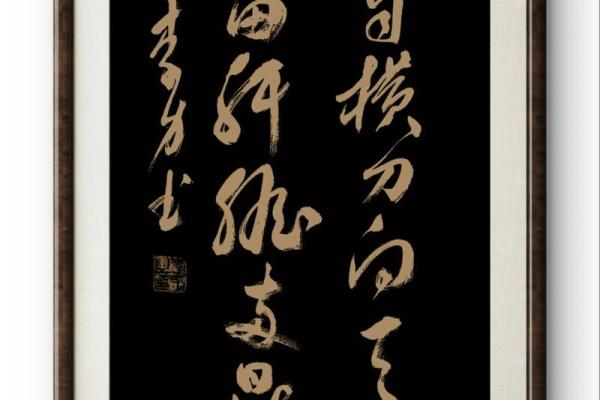 自横刀向天
留肝胆两昆
书